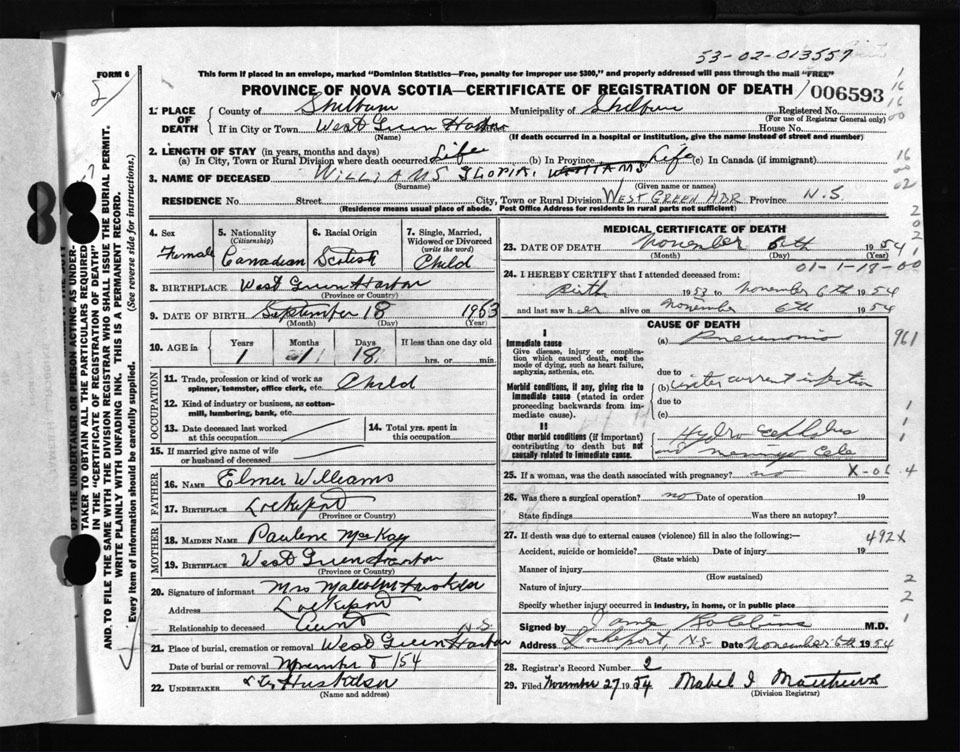 53-02-013557
FORM 6
This form if placed in an envelope, marked "Dominion Statistics—Free, penalty for improper use $300," and properly addressed will pass through the mail "FREE"
PROVINCE OF NOVA SCOTIA—CERTIFICATE OF REGISTRATION OF DEATH
006593
1. PLACE OF DEATH County of Shelburne Municipality of Shelburne Registered No.
(For use of Registrar General only)
If in City or Town West Green Harbor House No.
(Name) (If death occurred in a hospital or institution, give the name instead of street and number)
2. LENGTH OF STAY (in years, months and days)
(a) In City, Town or Rural Division where death occurred Life (b) In Province Life (c) In Canada (if immigrant)
3. NAME OF DECEASED WILLIAMS GLORIA, WILLIAMS
(Surname) (Given name or names)
RESIDENCE No. Street City, Town or Rural Division WEST GREEN HBR Province N.S.
(Residence means usual place of abode. Post Office Address for residents in rural parts not sufficient)
4. Sex Female
5. Nationality (Citizenship) Canadian
6. Racial Origin Scotish
7. Single, Married, Widowed or Divorced (write the word) Child
8. BIRTHPLACE West Green Harbor
(Province or Country)
9. DATE OF BIRTH September 18 1953
(Month) (Day) (Year)
10. AGE in Years Months Days If less than one day old
1 1 18 hrs. or min.
OCCUPATION
11. Trade, profession or kind of work as spinner, teamster, office clerk, etc. Child
12. Kind of industry or business, as cotton-mill, lumbering, bank, etc.
13. Date deceased last worked at this occupation
14. Total yrs. spent in this occupation
15. If married give name of wife or husband of deceased
FATHER
16. NAME Elmer Williams
17. BIRTHPLACE Lockeport
(Province or Country)
MOTHER
18. MAIDEN NAME Paulene McKay
19. BIRTHPLACE West Green Harbor
(Province or Country)
20. Signature of informant Mrs Malcolm
Address Lockeport
Relationship to deceased Aunt
21. Place of burial, cremation or removal West Green Harbor N.S.
Date of burial or removal November 8/54
22. UNDERTAKER Huskilson
(Name and address)
MEDICAL CERTIFICATE OF DEATH
23. DATE OF DEATH November 6th 1954
(Month) (Day) (Year)
01-1-18-00
24. I HEREBY CERTIFY that I attended deceased from:
Birth 1953 to November 6th 1954
and last saw her alive on November 6th 1954
CAUSE OF DEATH
I
Immediate cause
Give disease, injury or complication which caused death, not the mode of dying, such as heart failure, asphyxia, asthenia, etc.
(a) Pneumonia
961
due to
Morbid conditions, if any, giving rise to immediate cause (stated in order proceeding backwards from immediate cause).
(b) intercurrent infection
due to
(c)
II
Other morbid conditions (if important) contributing to death but not causally related to immediate cause.
Hydrocephlus
and
25. If a woman, was the death associated with pregnancy? no X-06.4
26. Was there a surgical operation? no Date of operation 19
State findings Was there an autopsy?
27. If death was due to external causes (violence) fill in also the following:— 492X
Accident, suicide or homicide? Date of injury 19
(State which)
Manner of injury
(How sustained)
Nature of injury
Specify whether injury occurred in industry, in home, or in public place
Signed by James Robbins M.D.
Address Lockeport, N.S. Date November 6th 1954
28. Registrar's Record Number 2
29. Filed November 27 1954 Mabel I. Matthews
(Division Registrar)
OF THE UNDERTAKER OR PERSON ACTING AS UNDER-
TAKER TO OBTAIN ALL THE PARTICULARS REQUIRED
IN THE "CERTIFICATE OF REGISTRATION OF DEATH"
AND TO FILE THE SAME WITH THE DIVISION REGISTRAR WHO SHALL ISSUE THE BURIAL PERMIT.
WRITE PLAINLY WITH UNFADING INK. THIS IS A PERMANENT RECORD.
Every item of information should be carefully supplied. (See reverse side for instructions.)